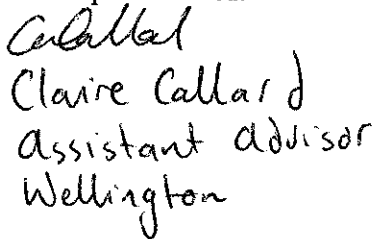 Claire Callard
Assistant Advisor
Wellington